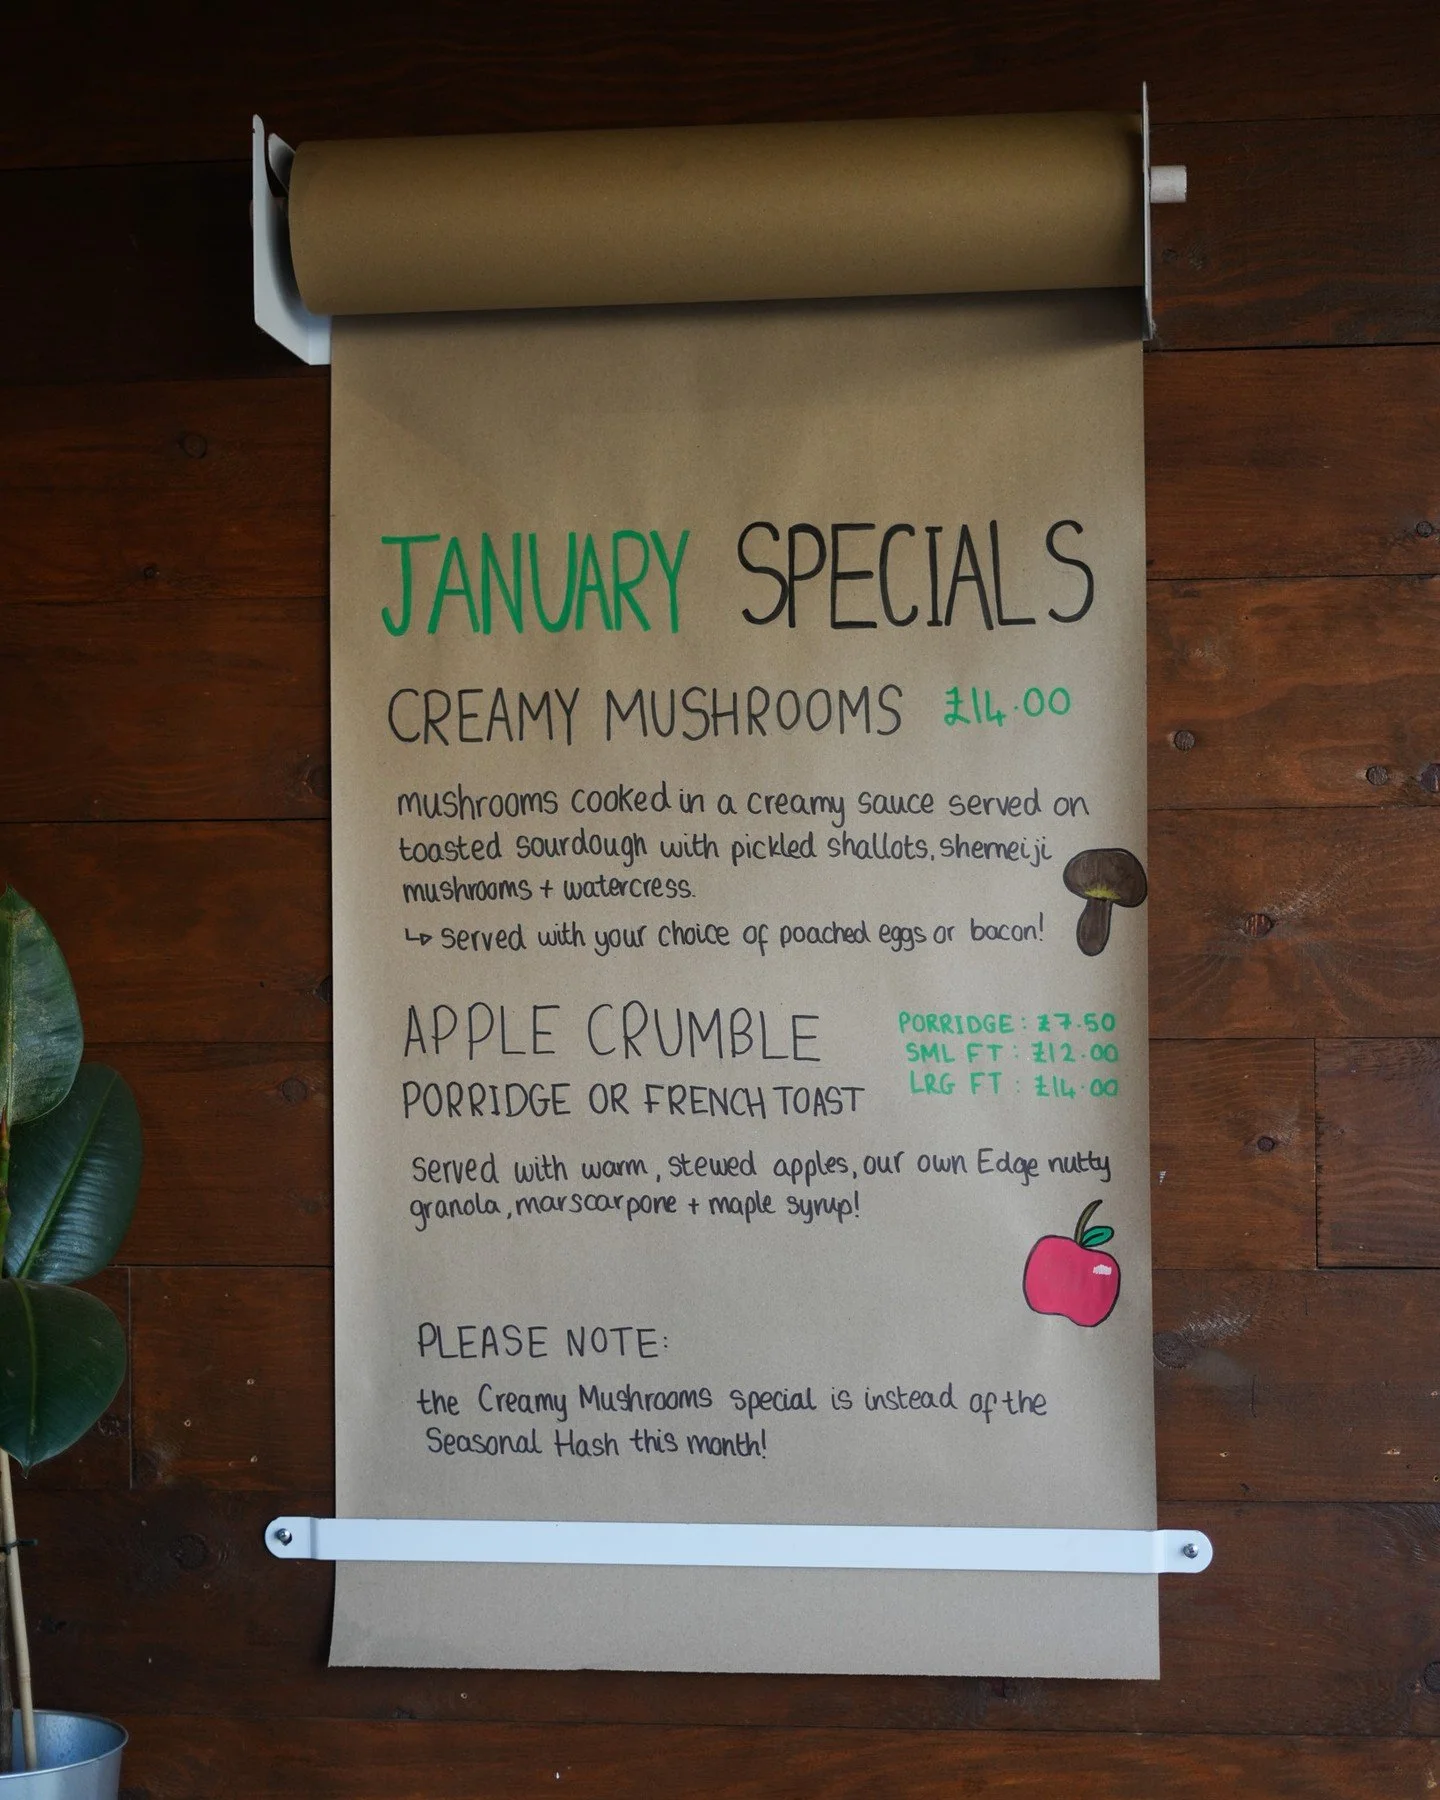 JANUARY SPECIALS
CREAMY MUSHROOMS £14.00
mushrooms cooked in a creamy sauce served on
toasted sourdough with pickled shallots, shemeiji
mushrooms + watercress.
↳ served with your choice of poached eggs or bacon!
APPLE CRUMBLE
PORRIDGE OR FRENCH TOAST
PORRIDGE: £7.50
SML FT: £12.00
LRG FT: £14.00
served with warm, stewed apples, our own Edge nutty
granola, marscarpone + maple syrup!
PLEASE NOTE:
the Creamy Mushrooms special is instead of the
Seasonal Hash this month!